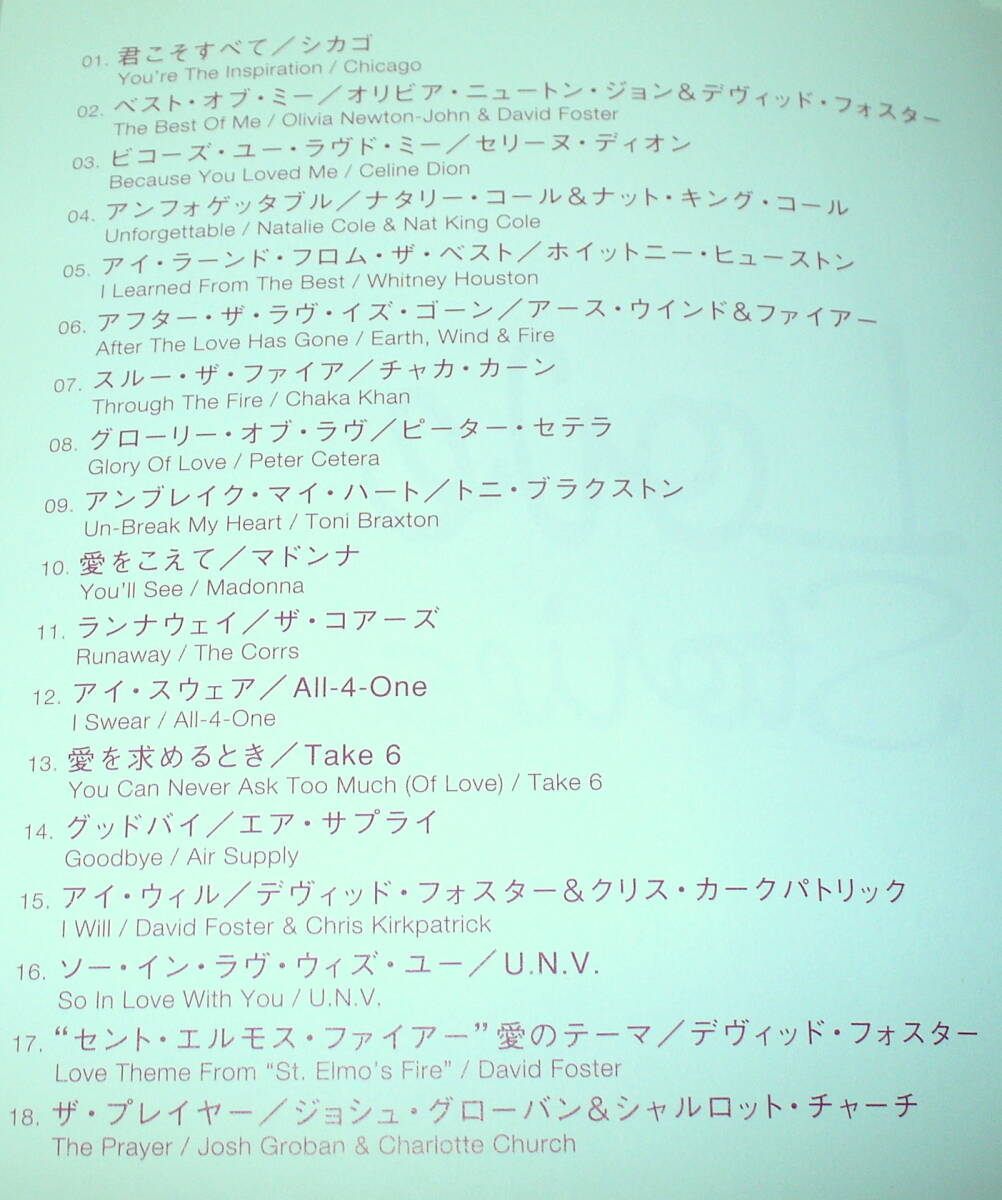 01. 君こそすべて／シカゴ
You're The Inspiration / Chicago
02. ベスト・オブ・ミー／オリビア・ニュートン・ジョン＆デヴィッド・フォスター
The Best Of Me / Olivia Newton-John & David Foster
03. ビコーズ・ユー・ラヴド・ミー／セリーヌ・ディオン
Because You Loved Me / Celine Dion
04. アンフォゲッタブル／ナタリー・コール＆ナット・キング・コール
Unforgettable / Natalie Cole & Nat King Cole
05. アイ・ラーンド・フロム・ザ・ベスト／ホイットニー・ヒューストン
I Learned From The Best / Whitney Houston
06. アフター・ザ・ラヴ・イズ・ゴーン／アース・ウインド＆ファイアー
After The Love Has Gone / Earth, Wind & Fire
07. スルー・ザ・ファイア／チャカ・カーン
Through The Fire / Chaka Khan
08. グローリー・オブ・ラヴ／ピーター・セテラ
Glory Of Love / Peter Cetera
09. アンブレイク・マイ・ハート／トニ・ブラクストン
Un-Break My Heart / Toni Braxton
10. 愛をこえて／マドンナ
You'll See / Madonna
11. ランナウェイ／ザ・コアーズ
Runaway / The Corrs
12. アイ・スウェア／All-4-One
I Swear / All-4-One
13. 愛を求めるとき／Take 6
You Can Never Ask Too Much (Of Love) / Take 6
14. グッドバイ／エア・サプライ
Goodbye / Air Supply
15. アイ・ウィル／デヴィッド・フォスター＆クリス・カークパトリック
I Will / David Foster & Chris Kirkpatrick
16. ソー・イン・ラヴ・ウィズ・ユー／U.N.V.
So In Love With You / U.N.V.
17. “セント・エルモス・ファイアー”愛のテーマ／デヴィッド・フォスター
Love Theme From “St. Elmo's Fire” / David Foster
18. ザ・プレイヤー／ジョシュ・グローバン＆シャルロット・チャーチ
The Prayer / Josh Groban & Charlotte Church